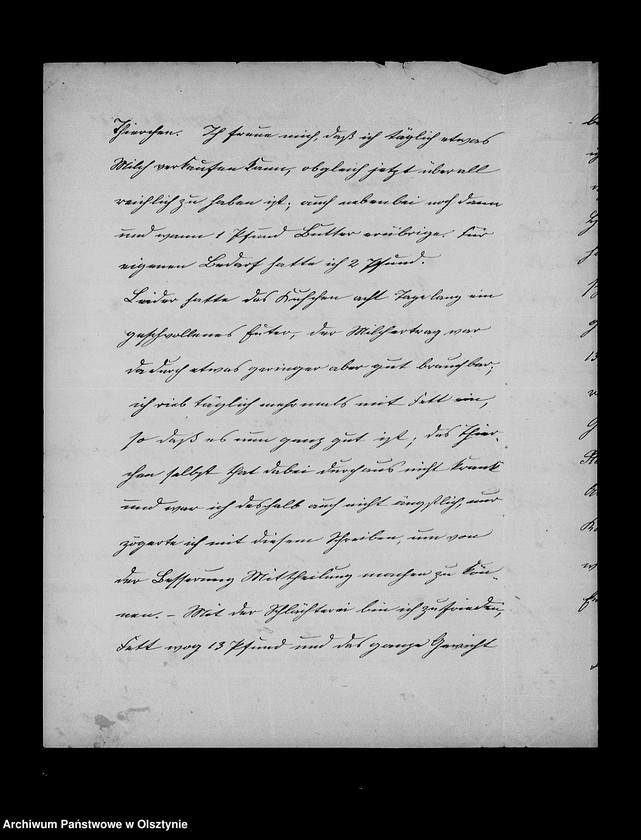 Thierchen. Ich freue mich, daß ich täglich etwas
Milch verkaufen kann, obgleich jetzt überall
reichlich zu haben ist; auch nebenbei noch dann
und wann 1 Pfund Butter erübrige. Für
eigenen Bedarf hatte ich 2 Pfund.
Leider hatte das Kuhchen acht Tage lang ein
geschwollenes Euter, der Milchertrag war
dadurch etwas geringer aber gut brauchbar;
ich rieb täglich mehrmals mit Fett ein,
so daß es nun ganz gut ist; das Thier-
chen selbst that dabei durchaus nicht krank
und war ich deshalb auch nicht ängstlich, nur
zögerte ich mit diesem Schreiben, um von
der Besserung Mittheilung machen zu kön-
nen. – Mit der Schlächterei bin ich zufrieden,
Fett wog 13 Pfund und das ganze Gewicht
Archiwum Państwowe w Olsztynie